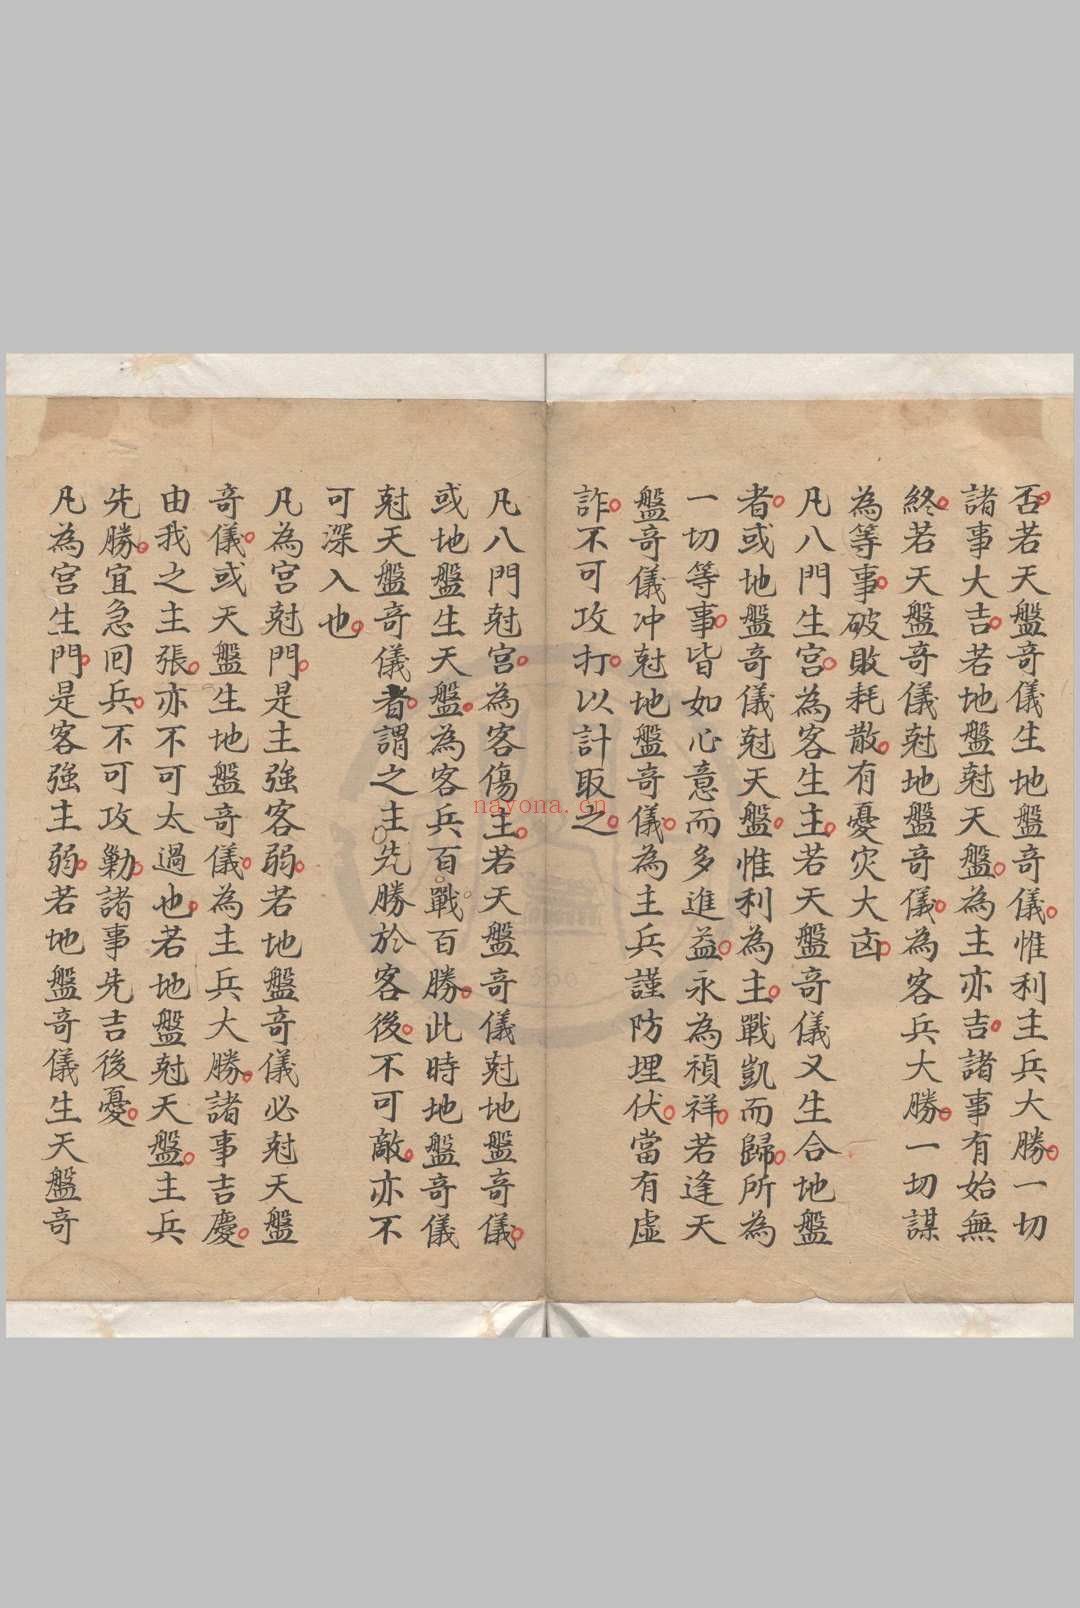 否若天盤奇儀生地盤奇儀惟利主兵大勝一切
諸事大吉若地盤尅天盤為主亦吉諸事有始無
終若天盤奇儀尅地盤奇儀為客兵大勝一切謀
為等事破敗耗散有憂灾大凶
凡八門生宮為客生主若天盤奇儀又生合地盤
者或地盤奇儀尅天盤惟利為主戰凱而歸所為
一切等事皆如心意而多進益永為禎祥若逢天
盤奇儀冲尅地盤奇儀為主兵謹防埋伏當有虛
詐不可攻打以計取之
凡八門尅宮為客傷主若天盤奇儀尅地盤奇儀
或地盤生天盤為客兵百戰百勝此時地盤奇儀
尅天盤奇儀者謂之主先勝於客後不可敵亦不
可深入也
凡為宮尅門是主強客弱若地盤奇儀必尅天盤
奇儀或天盤生地盤奇儀為主兵大勝諸事吉慶
由我之主張亦不可太過也若地盤尅天盤主兵
先勝宜急回兵不可攻勦諸事先吉後憂
凡為宮生門是客強主弱若地盤奇儀生天盤奇
nayona.cn